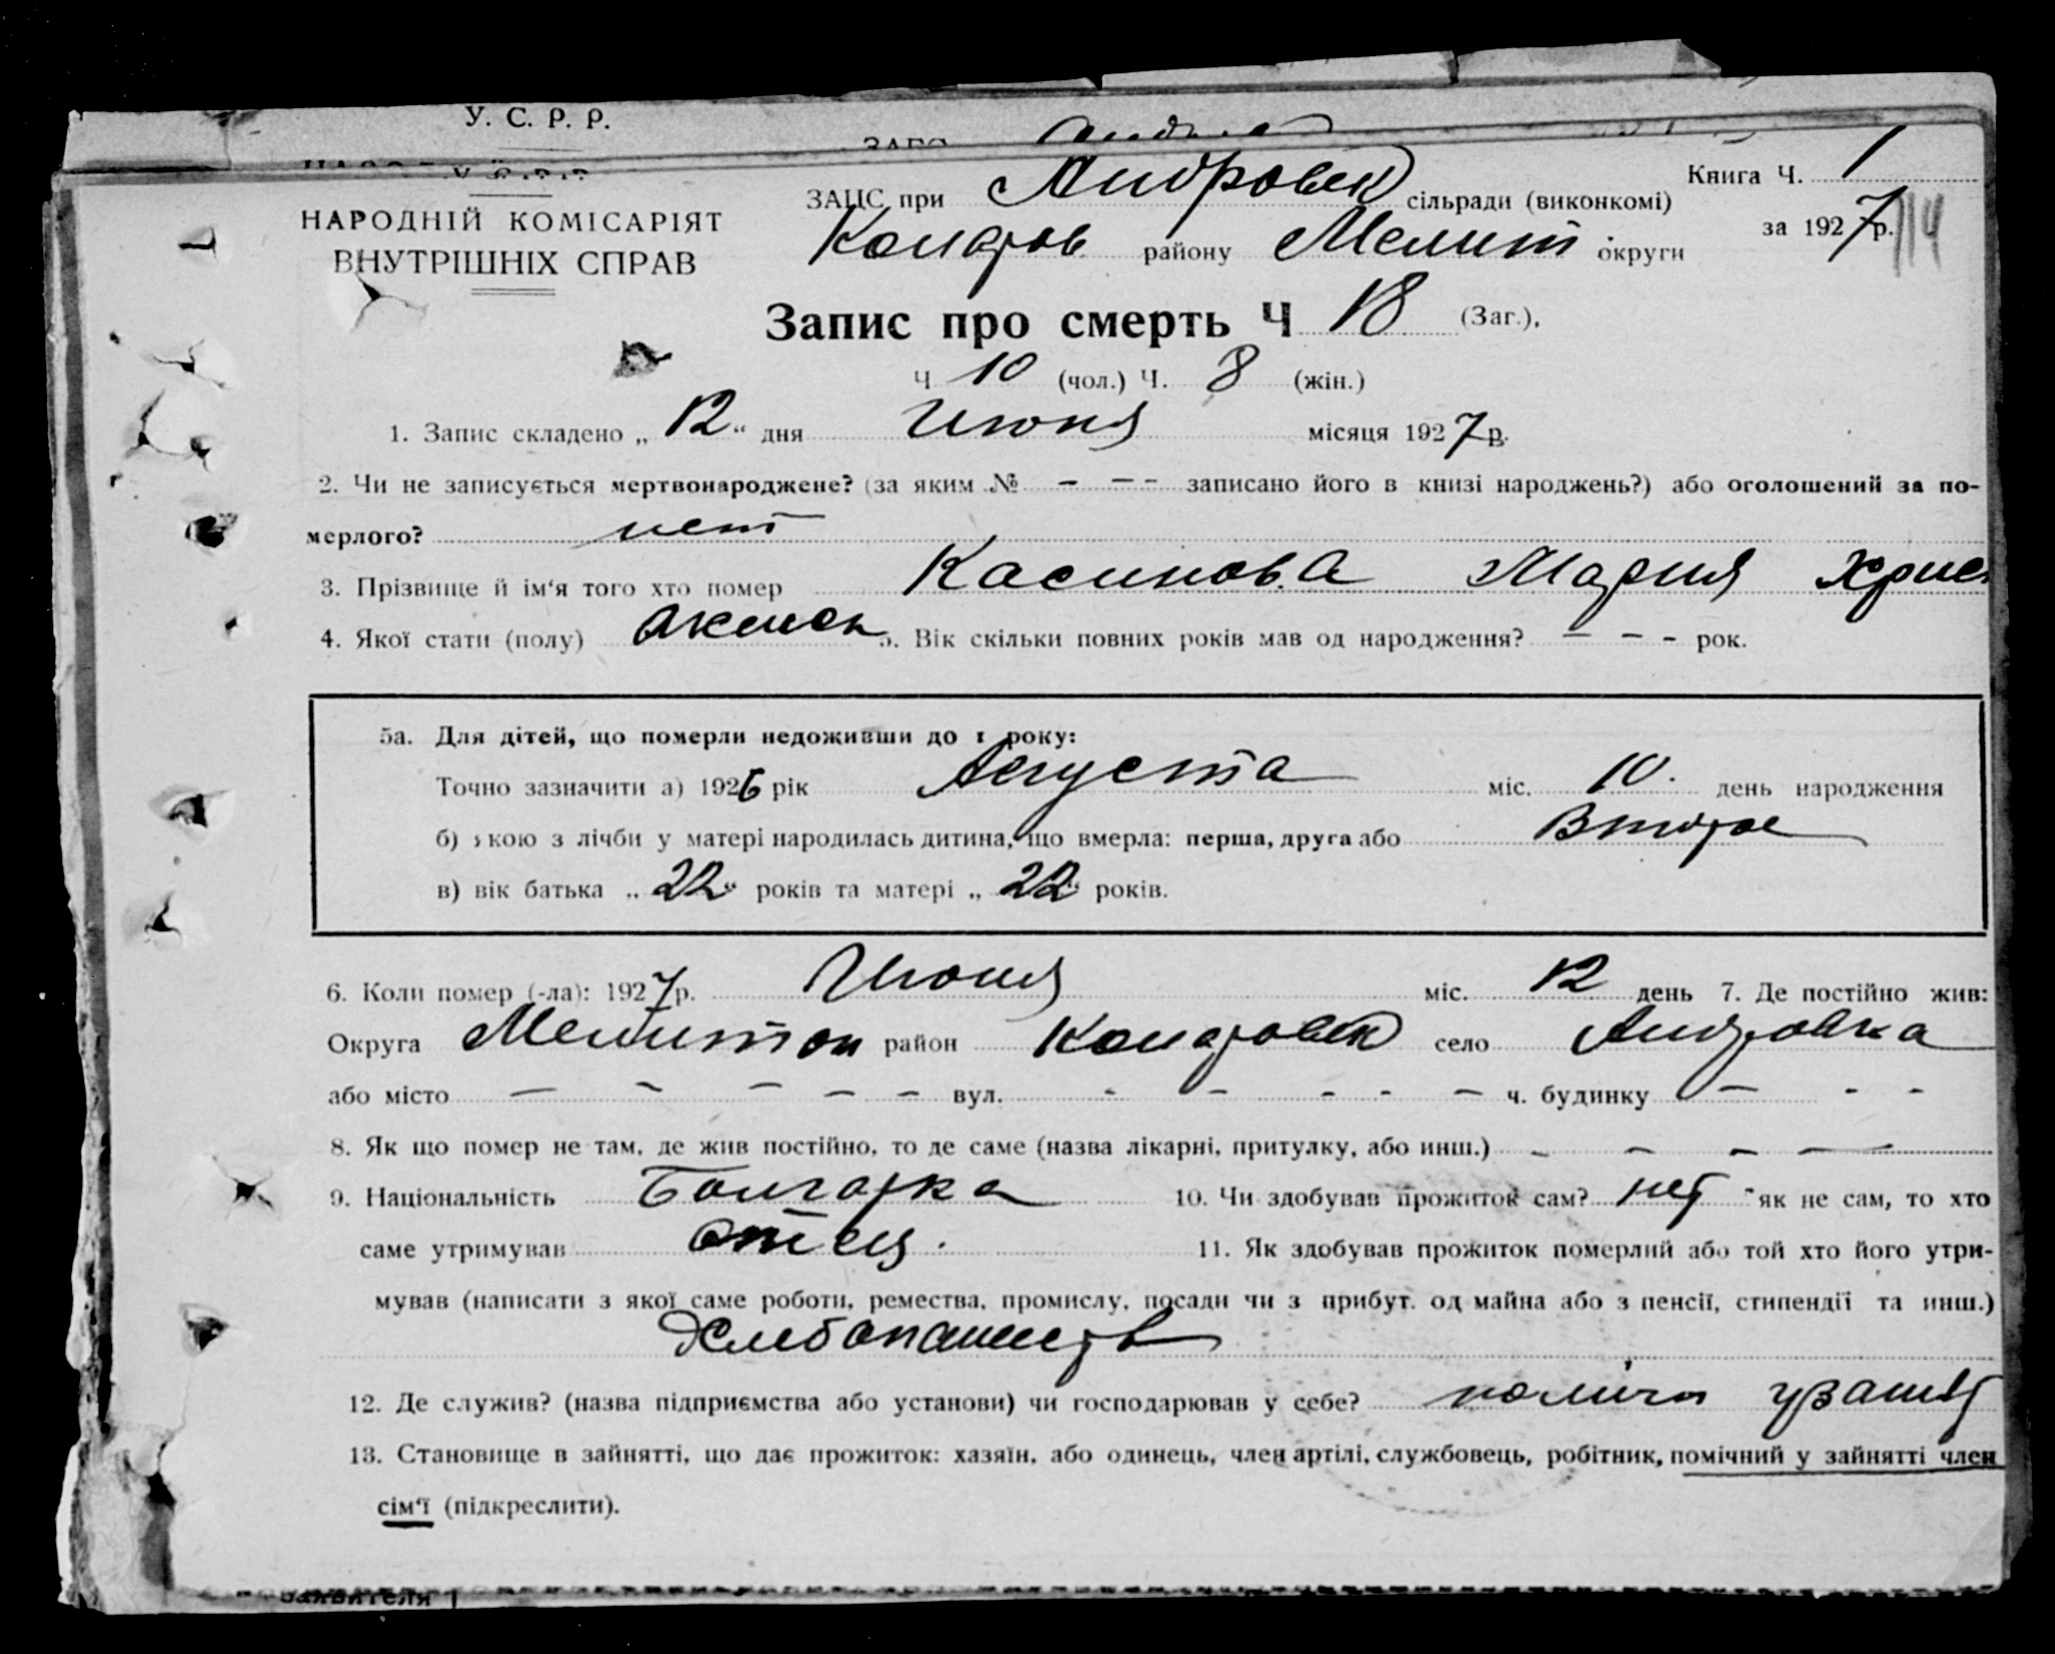 У. С. Р. Р.
НАРОДНІЙ КОМІСАРІЯТ
ВНУТРІШНІХ СПРАВ
ЗАЦС при Андровск сільради (виконкомі)
Коларов району Мелит. округи
Книга Ч. 1
за 1927 р. 114
Запис про смерть Ч 18 (Заг.),
Ч 10 (чол.) Ч. 8 (жін.)
1. Запис складено „ 12 “ дня Июня місяця 1927 р.
2. Чи не записується мертвонароджене? (за яким № - - - записано його в книзі народжень?) або оголошений за по-
мерлого? нет
3. Прізвище й ім‘я того хто помер Касинова Мария Хрис
4. Якої стати (полу) женск 5. Вік скільки повних років мав од народження? - - - рок.
5а. Для дітей, що померли недоживши до 1 року:
Точно зазначити а) 1926 рік Августа міс. 10. день народження
б) якою з лічби у матері народилась дитина, що вмерла: перша, друга або Второе
в) вік батька „ 22 “ років та матері „ 22 “ років.
6. Коли помер (-ла): 1927 р. Июня міс. 12 день 7. Де постійно жив:
Округа Мелитоп район Коларовск село Андровка
або місто - - - - - вул. - - - - - ч. будинку - - -
8. Як що помер не там, де жив постійно, то де саме (назва лікарні, притулку, або инш.) - - - -
9. Національність Болгарка 10. Чи здобував прожиток сам? нет як не сам, то хто
саме утримував отец. 11. Як здобував прожиток померлий або той хто його утри-
мував (написати з якої саме роботи, ремества, промислу, посади чи з прибут. од майна або з пенсії, стипендії та инш.)
Хлебопашеств
12. Де служив? (назва підприємства або установи) чи господарював у себе?
13. Становище в зайнятті, що дає прожиток: хазяїн, або одинець, член артілі, службовець, робітник, помічний у зайнятті член
сім‘ї (підкреслити).